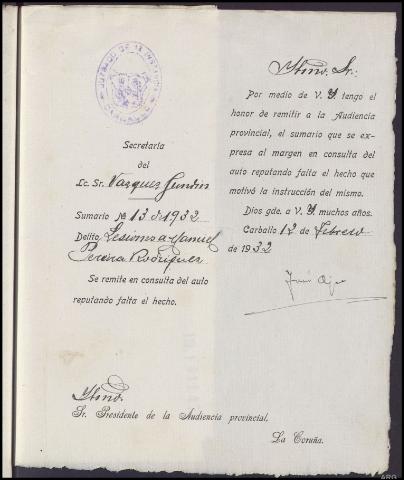 JUZGADO DE INSTRUCCIÓN
CARBALLO
Secretaría
del
Lc. Sr. Vazquez Gundin
Sumario Nº 13 de 1932
Delito Lesiones a Manuel
Pereira Rodriguez
Se remite en consulta del auto
reputando falta el hecho.
Iltmo. Sr.:
Por medio de V. Y. tengo el
honor de remitir a la Audiencia
provincial, el sumario que se ex-
presa al margen en consulta del
auto reputando falta el hecho que
motivó la instrucción del mismo.
Dios gde. a V. Y. muchos años.
Carballo 12 de Febrero
de 1932
Iltmo.
Sr. Presidente de la Audiencia provincial.
La Coruña.
ARG